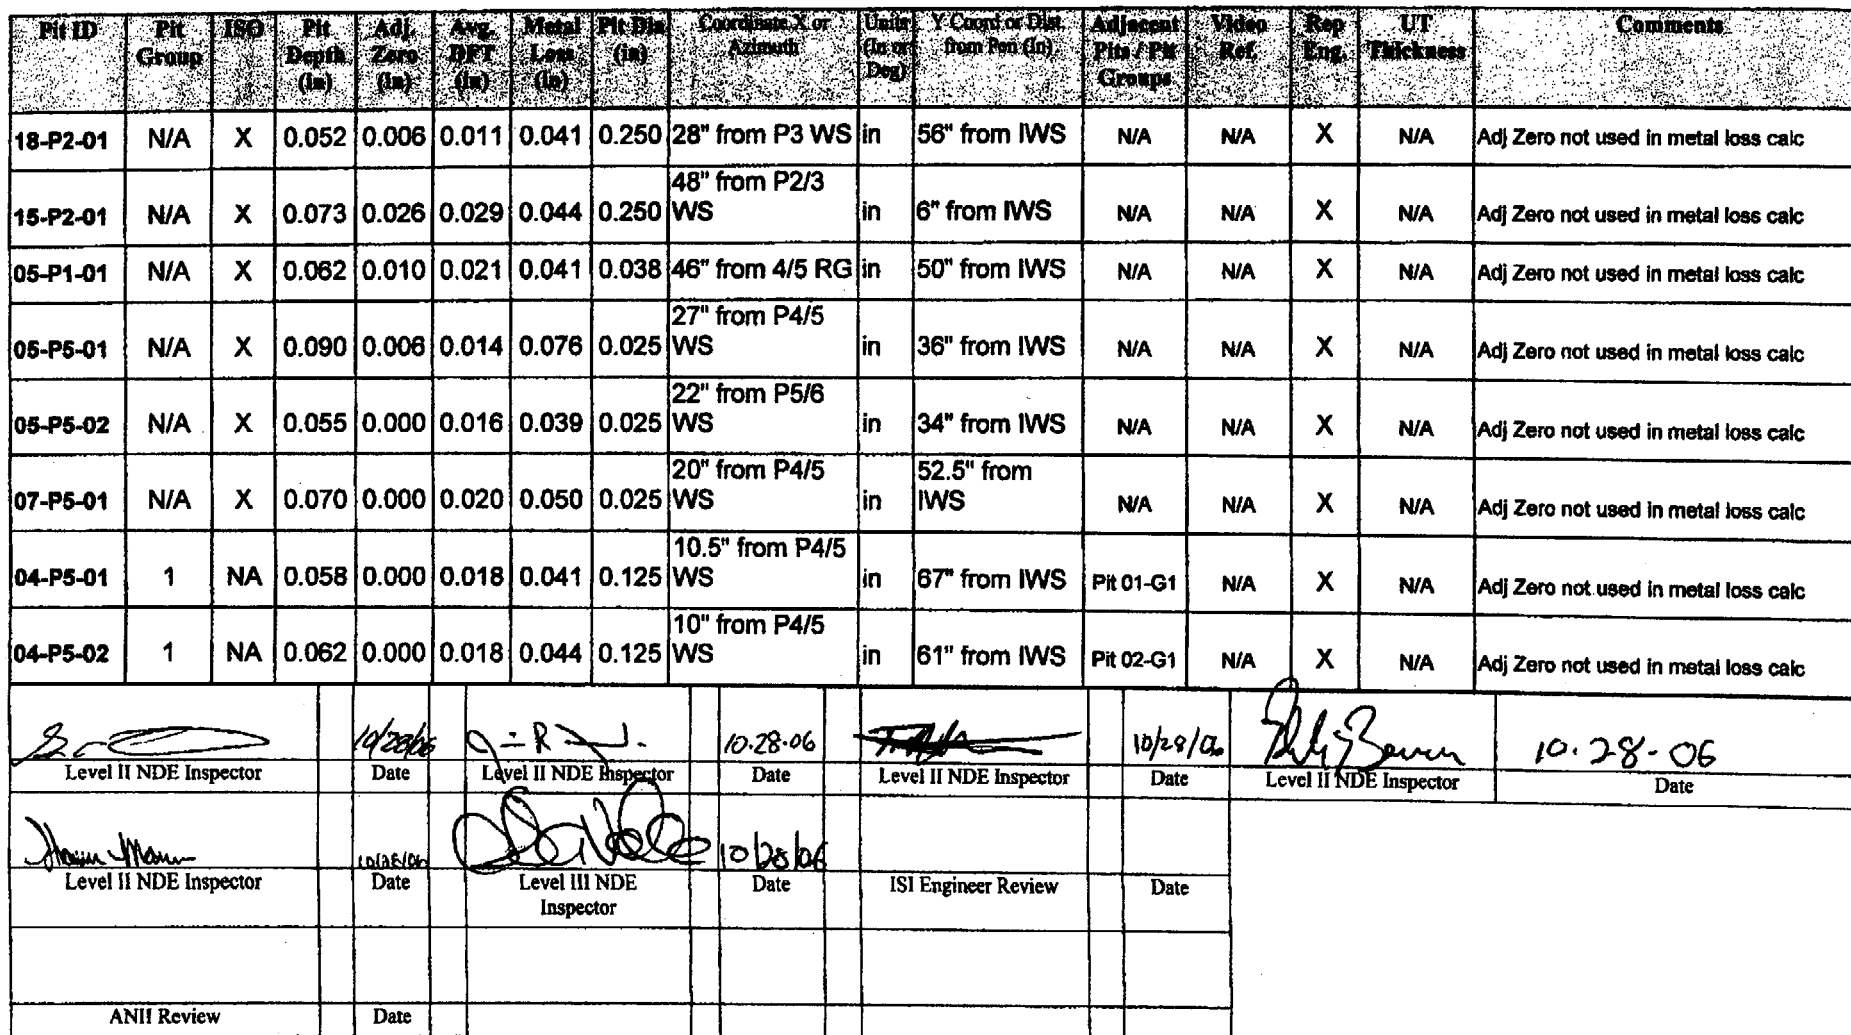 Pit ID Pit Group ISO Pit Depth (in) Adj. Zero (in) Avg. DFT (in) Metal Loss (in) Pit Dia (in) Coordinate X or Azimuth Units (In or Deg) Y Coord or Dist from Pen (In) Adjacent Pits / Pit Groups Video Ref. Rep Eng. UT Thickness Comments
18-P2-01 N/A X 0.052 0.006 0.011 0.041 0.250 28" from P3 WS in 56" from IWS N/A N/A X N/A Adj Zero not used in metal loss calc
15-P2-01 N/A X 0.073 0.026 0.029 0.044 0.250 48" from P2/3 WS in 6" from IWS N/A N/A X N/A Adj Zero not used in metal loss calc
05-P1-01 N/A X 0.062 0.010 0.021 0.041 0.038 46" from 4/5 RG in 50" from IWS N/A N/A X N/A Adj Zero not used in metal loss calc
05-P5-01 N/A X 0.090 0.006 0.014 0.076 0.025 27" from P4/5 WS in 36" from IWS N/A N/A X N/A Adj Zero not used in metal loss calc
05-P5-02 N/A X 0.055 0.000 0.016 0.039 0.025 22" from P5/6 WS in 34" from IWS N/A N/A X N/A Adj Zero not used in metal loss calc
07-P5-01 N/A X 0.070 0.000 0.020 0.050 0.025 20" from P4/5 WS in 52.5" from IWS N/A N/A X N/A Adj Zero not used in metal loss calc
04-P5-01 1 NA 0.058 0.000 0.018 0.041 0.125 10.5" from P4/5 WS in 67" from IWS Pit 01-G1 N/A X N/A Adj Zero not used in metal loss calc
04-P5-02 1 NA 0.062 0.000 0.018 0.044 0.125 10" from P4/5 WS in 61" from IWS Pit 02-G1 N/A X N/A Adj Zero not used in metal loss calc
10/28/06 10.28.06 10/28/06 10.28-06
Level II NDE Inspector Date Level II NDE Inspector Date Level II NDE Inspector Date Level II NDE Inspector Date
10/28/06 10/28/06
Level II NDE Inspector Date Level III NDE Inspector Date ISI Engineer Review Date
ANII Review Date